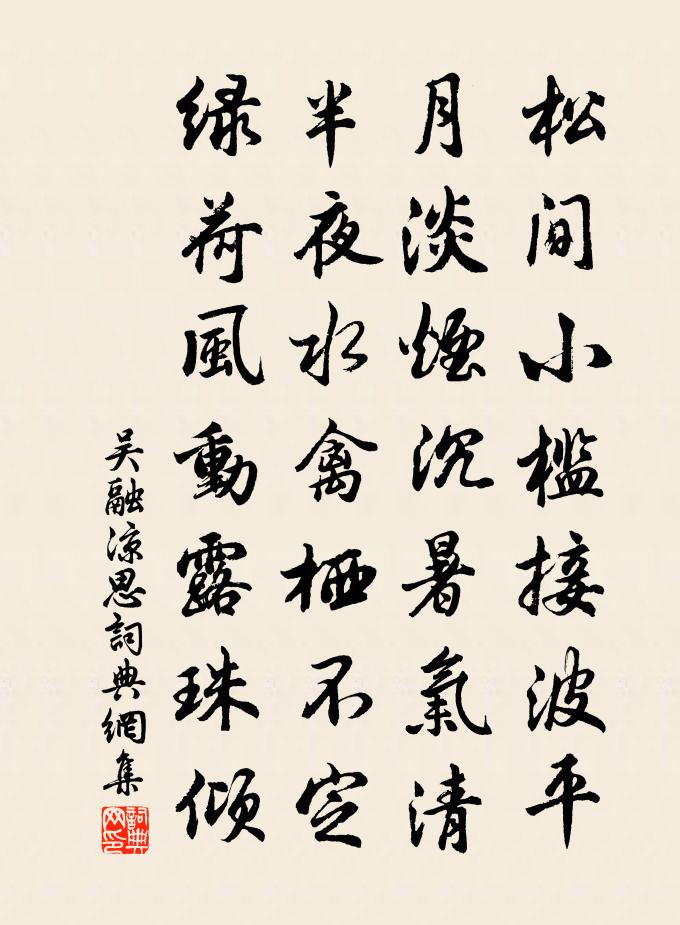 松間小檻接波平
月淡煙沉暑氣清
半夜水禽栖不定
绿荷風動露珠傾
吴融涼思詞典網集
詞典网印